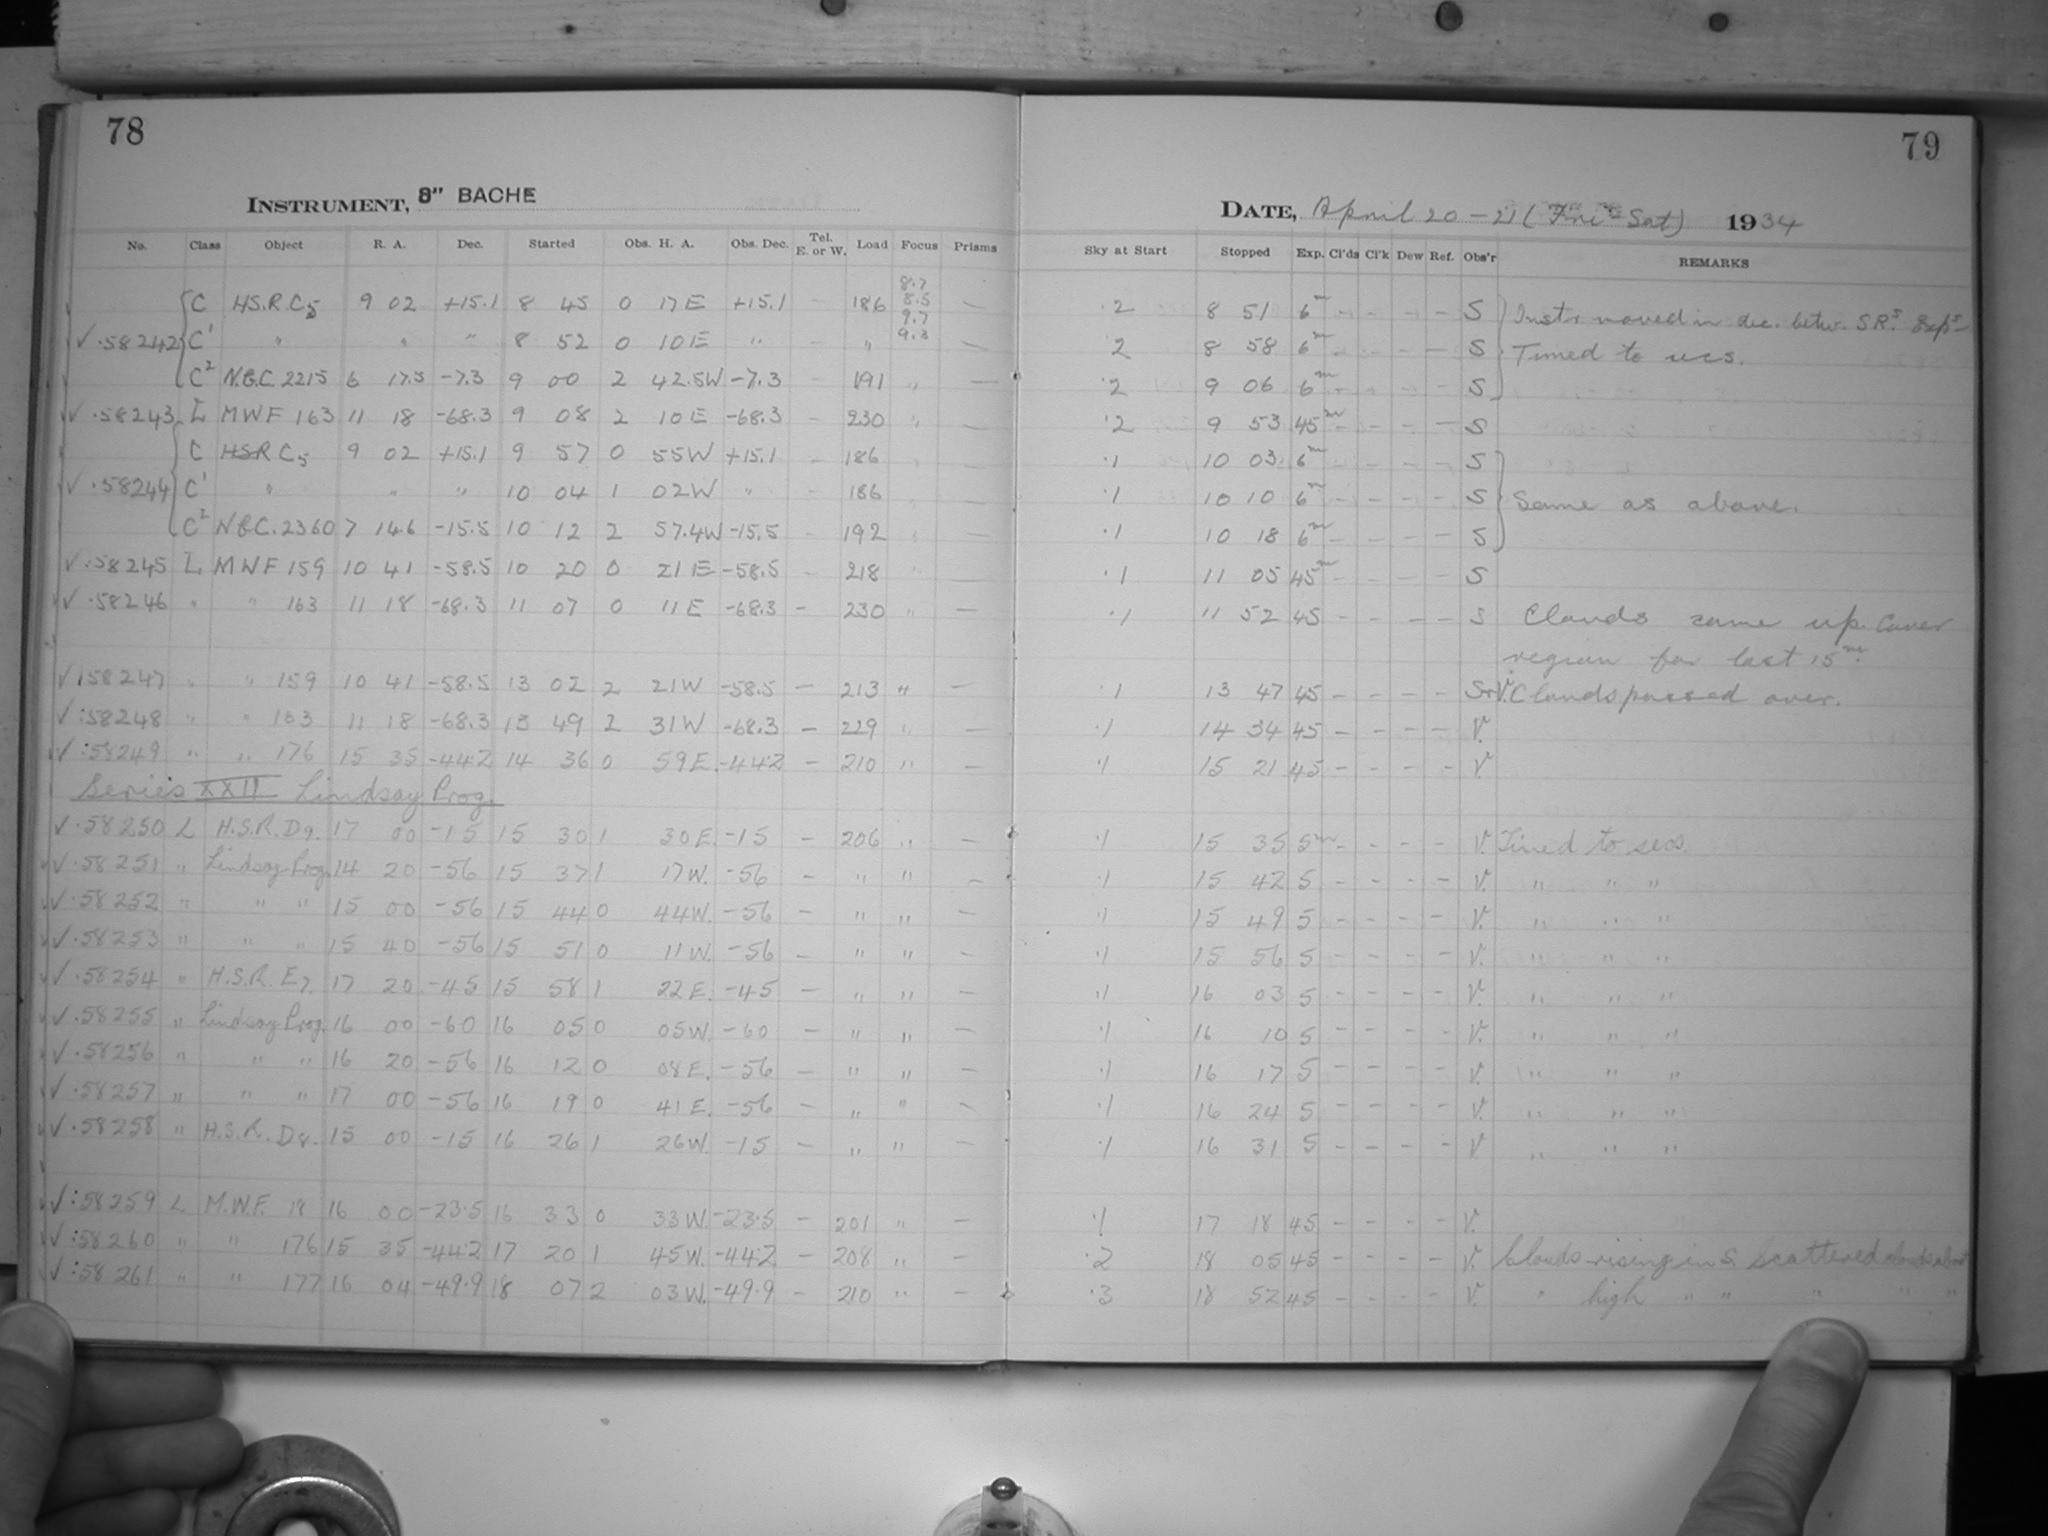 78
INSTRUMENT, 8" BACHE
No. Class Object R. A. Dec. Started Obs. H. A. Obs. Dec. Tel. E. or W. Load Focus Prisms
8.7
C H.S.R. C5 9 02 +15.1 8 45 0 17 E +15.1 - 186 8.5 —
9.7
√ .58242 C1 " " " 8 52 0 10 E " - " 9.3 —
C2 N.G.C. 2215 6 17.5 -7.3 9 00 2 42.5W -7.3 - 191 " —
√ .58243 L MWF 163 11 18 -68.3 9 08 2 10 E -68.3 - 230 "
C HSR C5 9 02 +15.1 9 57 0 55W +15.1 - 186 " —
√ .58244 C1 " " " 10 04 1 02W " - 186 " —
C2 N.G.C. 2360 7 14.6 -15.5 10 12 2 57.4W -15.5 - 192 " —
√ .58245 L MWF 159 10 41 -58.5 10 20 0 21 E -58.5 - 218 " —
√ .58246 " " 163 11 18 -68.3 11 07 0 11 E -68.3 - 230 " —
√ .58247 " " 159 10 41 -58.5 13 02 2 21W -58.5 - 213 " —
√ :58248 " " 163 11 18 -68.3 13 49 2 31W -68.3 - 229 " —
√ :58249 " " 176 15 35 -44.2 14 36 0 59E. -44.2 - 210 " —
Series XXII Lindsay Prog.
√ .58250 L H.S.R. D9. 17 00 -15 15 30 1 30E. -15 - 206 " —
√ .58251 " Lindsay Prog. 14 20 -56 15 37 1 17W. -56 - " " —
√ .58252 " " " 15 00 -56 15 44 0 44W. -56 - " " —
√ .58253 " " " 15 40 -56 15 51 0 11W. -56 - " " —
√ .58254 " H.S.R. E7. 17 20 -45 15 58 1 22E. -45 - " " —
√ .58255 " Lindsay Prog. 16 00 -60 16 05 0 05W. -60 - " " —
√ .58256 " " " 16 20 -56 16 12 0 08E. -56 - " " —
√ .58257 " " " 17 00 -56 16 19 0 41E. -56 - " " —
√ .58258 " H.S.R. D8. 15 00 -15 16 26 1 26W. -15 - " " —
√ :58259 L M.W.F. 18 16 00 -23.5 16 33 0 33W. -23.5 - 201 " —
√ :58260 " " 176 15 35 -44.2 17 20 1 45W. -44.2 - 208 " —
√ :58261 " " 177 16 04 -49.9 18 07 2 03W. -49.9 - 210 " —
79
DATE, April 20-21 (Fri-Sat) 1934
Sky at Start Stopped Exp. Cl'ds Cl'k Dew Ref. Obs'r REMARKS
.2 8 51 6m - - - - S Instr moved in dec. betw. S.R.s Exps
.2 8 58 6m - - - - S Timed to secs.
.2 9 06 6m - - - - S
.2 9 53 45m - - - - S
.1 10 03 6m - - - - S
.1 10 10 6m - - - - S Same as above.
.1 10 18 6m - - - - S
.1 11 05 45m - - - - S
.1 11 52 45 - - - - S Clouds came up. Cover
region for last 15m.
.1 13 47 45 - - - - S+V. Clouds passed over.
.1 14 34 45 - - - - V.
.1 15 21 45 - - - - V.
.1 15 35 5m - - - - V. Timed to secs.
.1 15 42 5 - - - - V. " " "
.1 15 49 5 - - - - V. " " "
.1 15 56 5 - - - - V. " " "
.1 16 03 5 - - - - V. " " "
.1 16 10 5 - - - - V. " " "
.1 16 17 5 - - - - V. " " "
.1 16 24 5 - - - - V. " " "
.1 16 31 5 - - - - V " " "
.1 17 18 45 - - - - V.
.2 18 05 45 - - - - V. Clouds rising in S. Scattered clouds about
.3 18 52 45 - - - - V. " high " " " " "